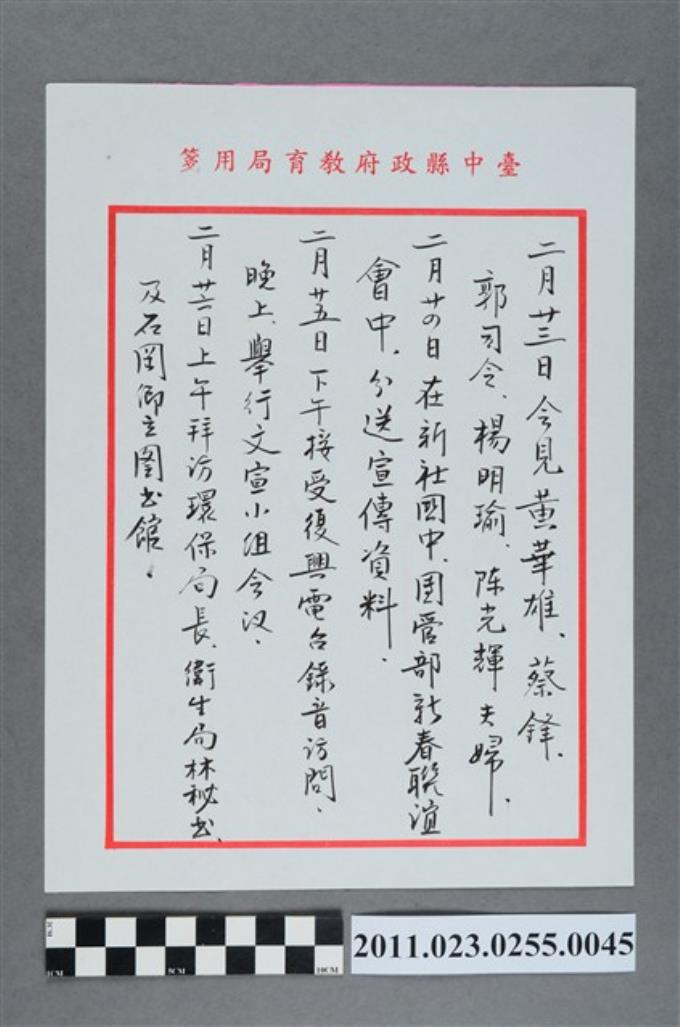 臺中縣政府教育局用箋
二月廿三日会見黃華雄、蔡鋒、
郭司令、楊明瑜、陈光輝夫婦、
二月廿四日在新社國中、團管部新春聯誼
會中、分送宣傳資料、
二月廿五日下午接受復興電台錄音访問、
晚上、舉行文宣小组会议、
二月廿六日上午拜访環保局長、衛生局林秘书、
及石岡鄉立图书館、
1CM
1CM
5CM
10CM
2011.023.0255.0045